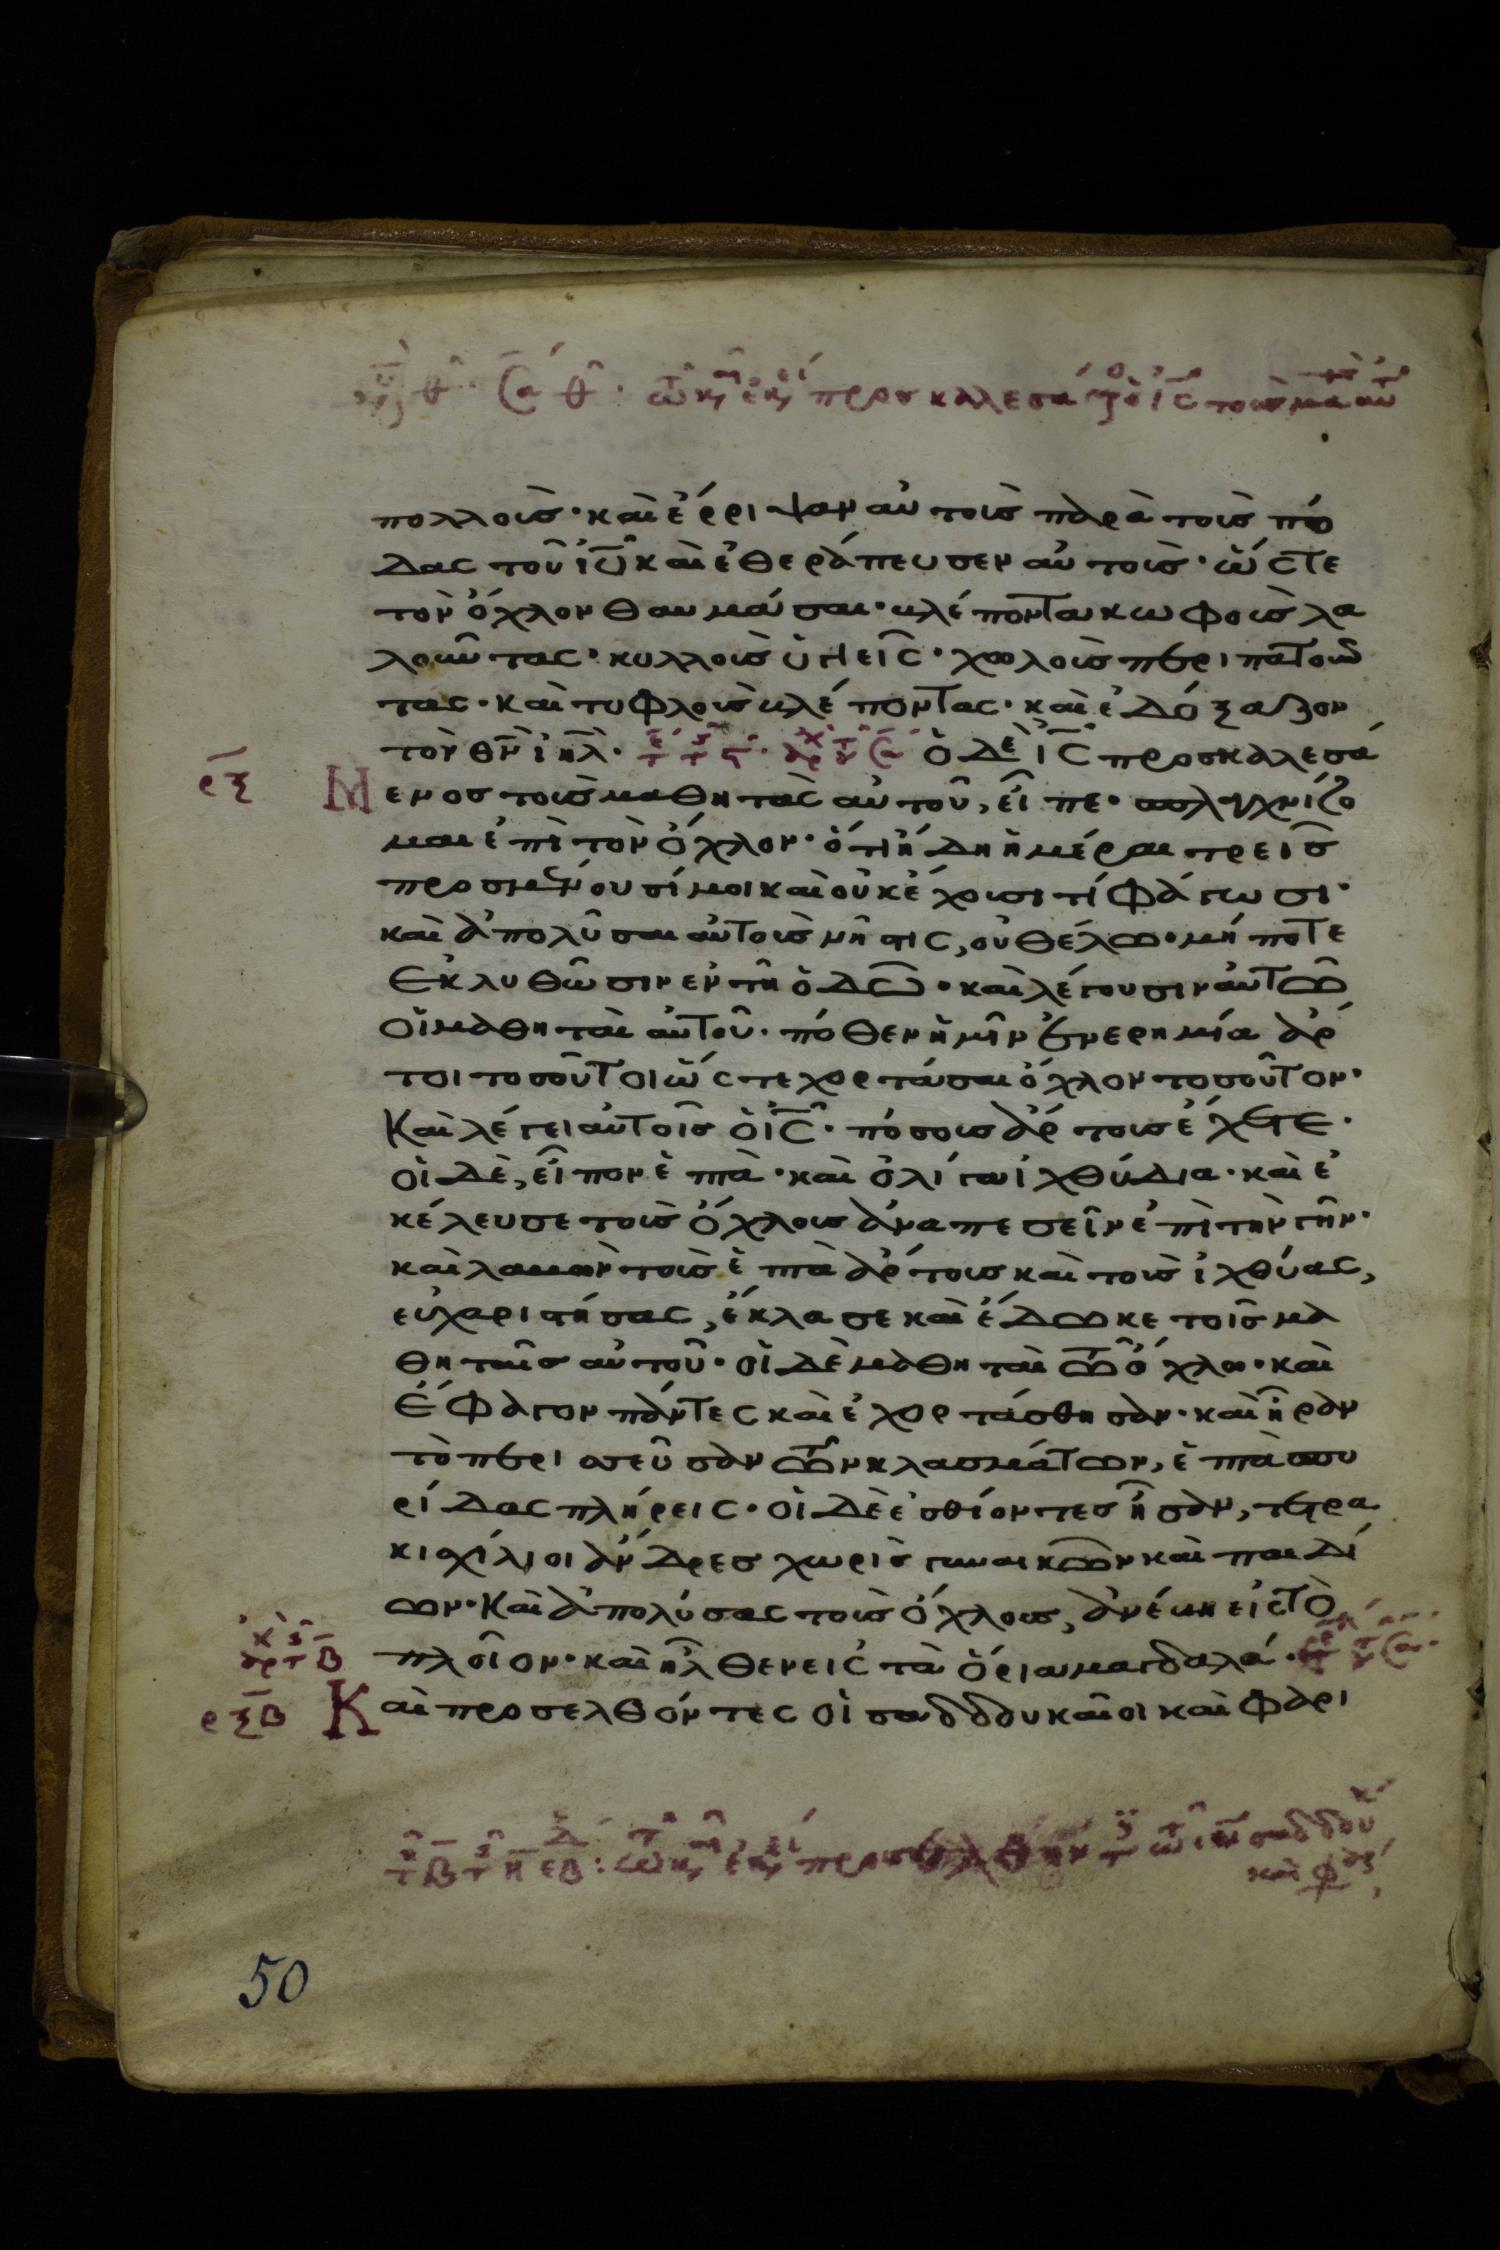 προσκαλεσά ὁ ις τοὺς μα αυ
πολλούς· καὶ ἔρριψαν αὐτοὺς παρὰ τοὺς πό
δας τοῦ ιυ καὶ ἐθεράπευσεν αὐτούς· ὥστε
τὸν ὄχλον θαυμάσαι· βλέποντα κωφοὺς λα
λοῦντας· κυλλοὺς ὑγιεῖς· χωλοὺς περιπατοῦ
τας· καὶ τυφλοὺς βλέποντας· καὶ ἐδόξαζον
τὸν θν ιηλ· ὁ δὲ ις προσκαλεσά
ρξ Μενος τοὺς μαθητὰς αὐτοῦ, εἶπε· σπλαγχνίζο
μαι ἐπὶ τὸν ὄχλον· ὅτι ἤδη ἡμέραι τρεῖς
προσμένουσί μοι καὶ οὐκ ἔχουσι τί φάγωσι·
καὶ ἀπολῦσαι αὐτοὺς νήστις, οὐ θέλω· μήποτε
ἐκλυθῶσιν ἐν τῇ ὁδῶ· καὶ λέγουσιν αὐτῶ
οἱ μαθηταὶ αὐτοῦ· πόθεν ἡμῖν ἐν ἐρημία ἄρ
τοι τοσοῦτοι ὥστε χορτάσαι ὄχλον τοσοῦτον·
Καὶ λέγει αὐτοῖς ὁ ις· πόσους ἄρτους ἔχετε·
οἱ δὲ, εἶπον ἑπτὰ· καὶ ὀλίγα ἰχθύδια· καὶ ἐ
κέλευσε τοὺς ὄχλους ἀναπεσεῖν ἐπὶ τὴν γῆν·
καὶ λαβὼν τοὺς ἑπτὰ ἄρτους καὶ τοὺς ἰχθύας,
εὐχαριστήσας, ἔκλασε καὶ ἔδωκε τοῖς μα
θηταῖς αὐτοῦ· οἱ δὲ μαθηταὶ τῶ ὄχλω· καὶ
ἔφαγον πάντες καὶ ἐχορτάσθησαν· καὶ ἦραν
τὸ περισσεῦσαν τῶν κλασμάτων, ἑπτὰ σπυ
ρίδας πλήρεις· οἱ δὲ ἐσθίοντες ἦσαν, τετρα
κισχίλιοι ἄνδρες χωρὶς γυναικῶν καὶ παιδί
ων· Καὶ ἀπολύσας τοὺς ὄχλους, ἀνέβη εἰς τὸ
πλοῖον· καὶ ἦλθεν εἰς τὰ ὅρια μαγδαλά·
ρξβ Καὶ προσελθόντες οἱ σαδδουκαῖοι καὶ φαρι
σαδδου
καὶ φαρ
50